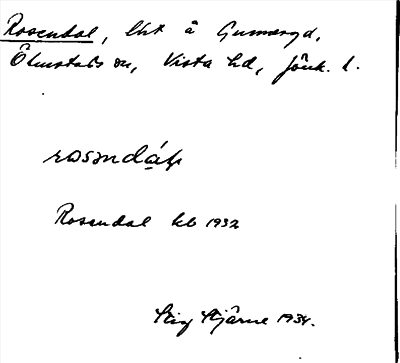 Rosendal, lht å Gunnaryd,
Ölmstads sn, Vista hd, Jönk. l.
rosəndɑ́ḷ
Rosendal kb 1932
Stig Stjärne 1934.